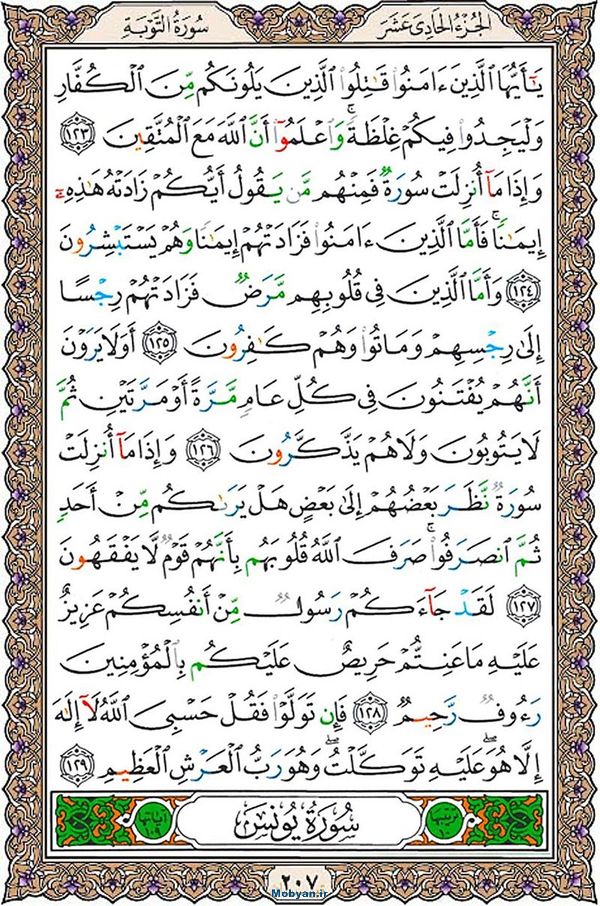 الجزء الحادي عشر
سورة التوبة
يَٰٓأَيُّهَا ٱلَّذِينَ ءَامَنُوا۟ قَٰتِلُوا۟ ٱلَّذِينَ يَلُونَكُم مِّنَ ٱلْكُفَّارِ
وَلْيَجِدُوا۟ فِيكُمْ غِلْظَةً ۚ وَٱعْلَمُوٓا۟ أَنَّ ٱللَّهَ مَعَ ٱلْمُتَّقِينَ ١٢٣
وَإِذَا مَآ أُنزِلَتْ سُورَةٌ فَمِنْهُم مَّن يَقُولُ أَيُّكُمْ زَادَتْهُ هَٰذِهِۦٓ
إِيمَٰنًا ۚ فَأَمَّا ٱلَّذِينَ ءَامَنُوا۟ فَزَادَتْهُمْ إِيمَٰنًا وَهُمْ يَسْتَبْشِرُونَ
١٢٤ وَأَمَّا ٱلَّذِينَ فِى قُلُوبِهِم مَّرَضٌ فَزَادَتْهُمْ رِجْسًا
إِلَىٰ رِجْسِهِمْ وَمَاتُوا۟ وَهُمْ كَٰفِرُونَ ١٢٥ أَوَلَا يَرَوْنَ
أَنَّهُمْ يُفْتَنُونَ فِى كُلِّ عَامٍ مَّرَّةً أَوْ مَرَّتَيْنِ ثُمَّ
لَا يَتُوبُونَ وَلَا هُمْ يَذَّكَّرُونَ ١٢٦ وَإِذَا مَآ أُنزِلَتْ
سُورَةٌ نَّظَرَ بَعْضُهُمْ إِلَىٰ بَعْضٍ هَلْ يَرَىٰكُم مِّنْ أَحَدٍ
ثُمَّ ٱنصَرَفُوا۟ ۚ صَرَفَ ٱللَّهُ قُلُوبَهُم بِأَنَّهُمْ قَوْمٌ لَّا يَفْقَهُونَ
١٢٧ لَقَدْ جَآءَكُمْ رَسُولٌ مِّنْ أَنفُسِكُمْ عَزِيزٌ
عَلَيْهِ مَا عَنِتُّمْ حَرِيصٌ عَلَيْكُم بِٱلْمُؤْمِنِينَ
رَءُوفٌ رَّحِيمٌ ١٢٨ فَإِن تَوَلَّوْا۟ فَقُلْ حَسْبِىَ ٱللَّهُ لَآ إِلَٰهَ
إِلَّا هُوَ ۖ عَلَيْهِ تَوَكَّلْتُ ۖ وَهُوَ رَبُّ ٱلْعَرْشِ ٱلْعَظِيمِ ١٢٩
ترتيبها ١٠
سورة يونس
آياتها ١٠٩
٢٠٧
Mobyan.ir